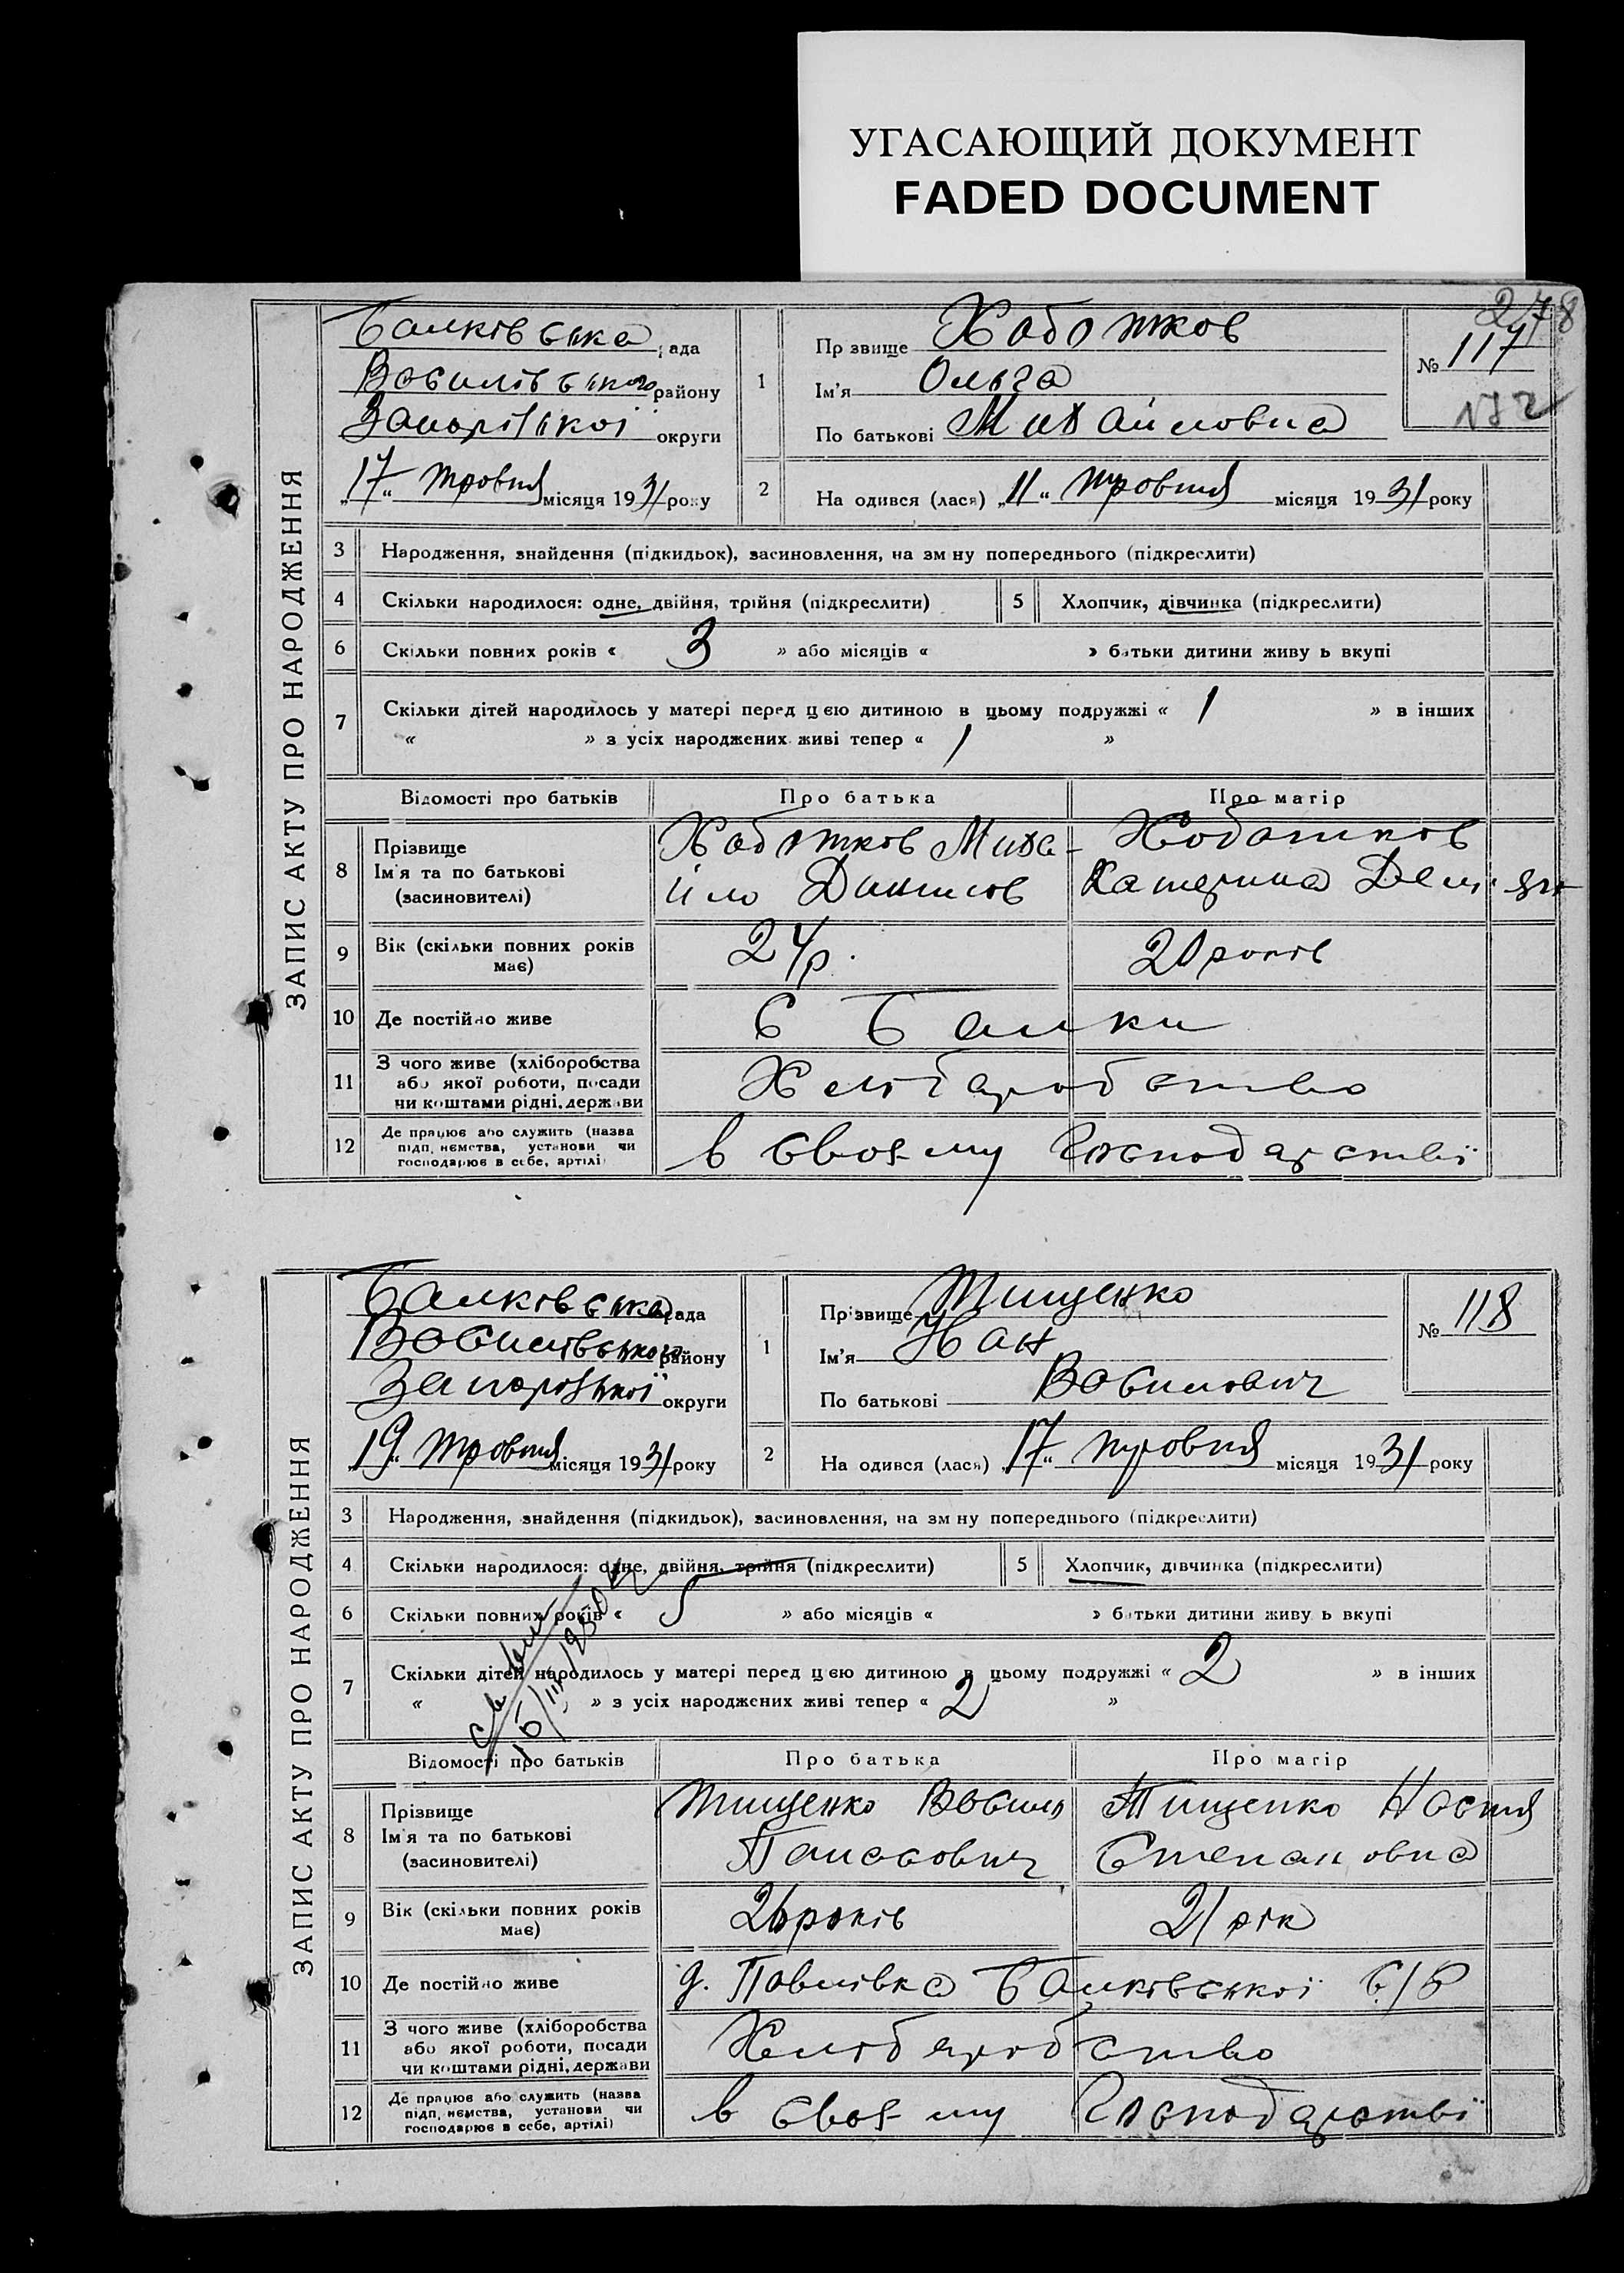 УГАСАЮЩИЙ ДОКУМЕНТ
FADED DOCUMENT
278
ЗАПИС АКТУ ПРО НАРОДЖЕННЯ
Балківська рада
Василівського району
Запорізької округи
„17“ травня місяця 1931 року
1
Прізвище Хаботков
Ім'я Ольга
По батькові Михайловна
№ 117
2
На одився (лася) „11“ травня місяця 1931 року
3 Народження, знайдення (підкидьок), засиновлення, на зм ну попереднього (підкреслити)
4 Скільки народилося: одне, двійня, трійня (підкреслити) 5 Хлопчик, дівчинка (підкреслити)
6 Скільки повних років « 3 » або місяців « » батьки дитини живу ь вкупі
7 Скільки дітей народилось у матері перед цею дитиною в цьому подружжі « 1 » в інших
« » з усіх народжених живі тепер « 1 »
Відомості про батьків Про батька Про матір
8 Прізвище
Ім'я та по батькові
(засиновителі)
Хаботков Миха-
йло Данилов
Хоботков
Катерина
9 Вік (скільки повних років
має)
24 р. 20 років
10 Де постійно живе с Балки
11 З чого живе (хліборобства
або якої роботи, посади
чи коштами рідні, держави
Хліборобство
12 Де працює або служить (назва
підп, иємства, установи чи
господарює в себе, артілі)
в своєму господарстві
ЗАПИС АКТУ ПРО НАРОДЖЕННЯ
Балківська рада
Василівського району
Запорізької округи
„19“ травня місяця 1931 року
1
Прізвище Тищенко
Ім'я Іван
По батькові Василович
№ 118
2
На одився (лася) „17“ травня місяця 1931 року
3 Народження, знайдення (підкидьок), засиновлення, на зм ну попереднього (підкреслити)
4 Скільки народилося: одне, двійня, трійня (підкреслити) 5 Хлопчик, дівчинка (підкреслити)
6 Скільки повних років « 5 » або місяців « » батьки дитини живу ь вкупі
7 Скільки дітей народилось у матері перед цею дитиною в цьому подружжі « 2 » в інших
« » з усіх народжених живі тепер « 2 »
Відомості про батьків Про батька Про матір
8 Прізвище
Ім'я та по батькові
(засиновителі)
Тищенко Василь
Панасович
Тищенко Настя
Степановна
9 Вік (скільки повних років
має)
26 років 21 рік
10 Де постійно живе д. Павлівка Балківської С/Р
11 З чого живе (хліборобства
або якої роботи, посади
чи коштами рідні, держави
Хліборобство
12 Де працює або служить (назва
підп, иємства, установи чи
господарює в себе, артілі)
в своєму господарстві